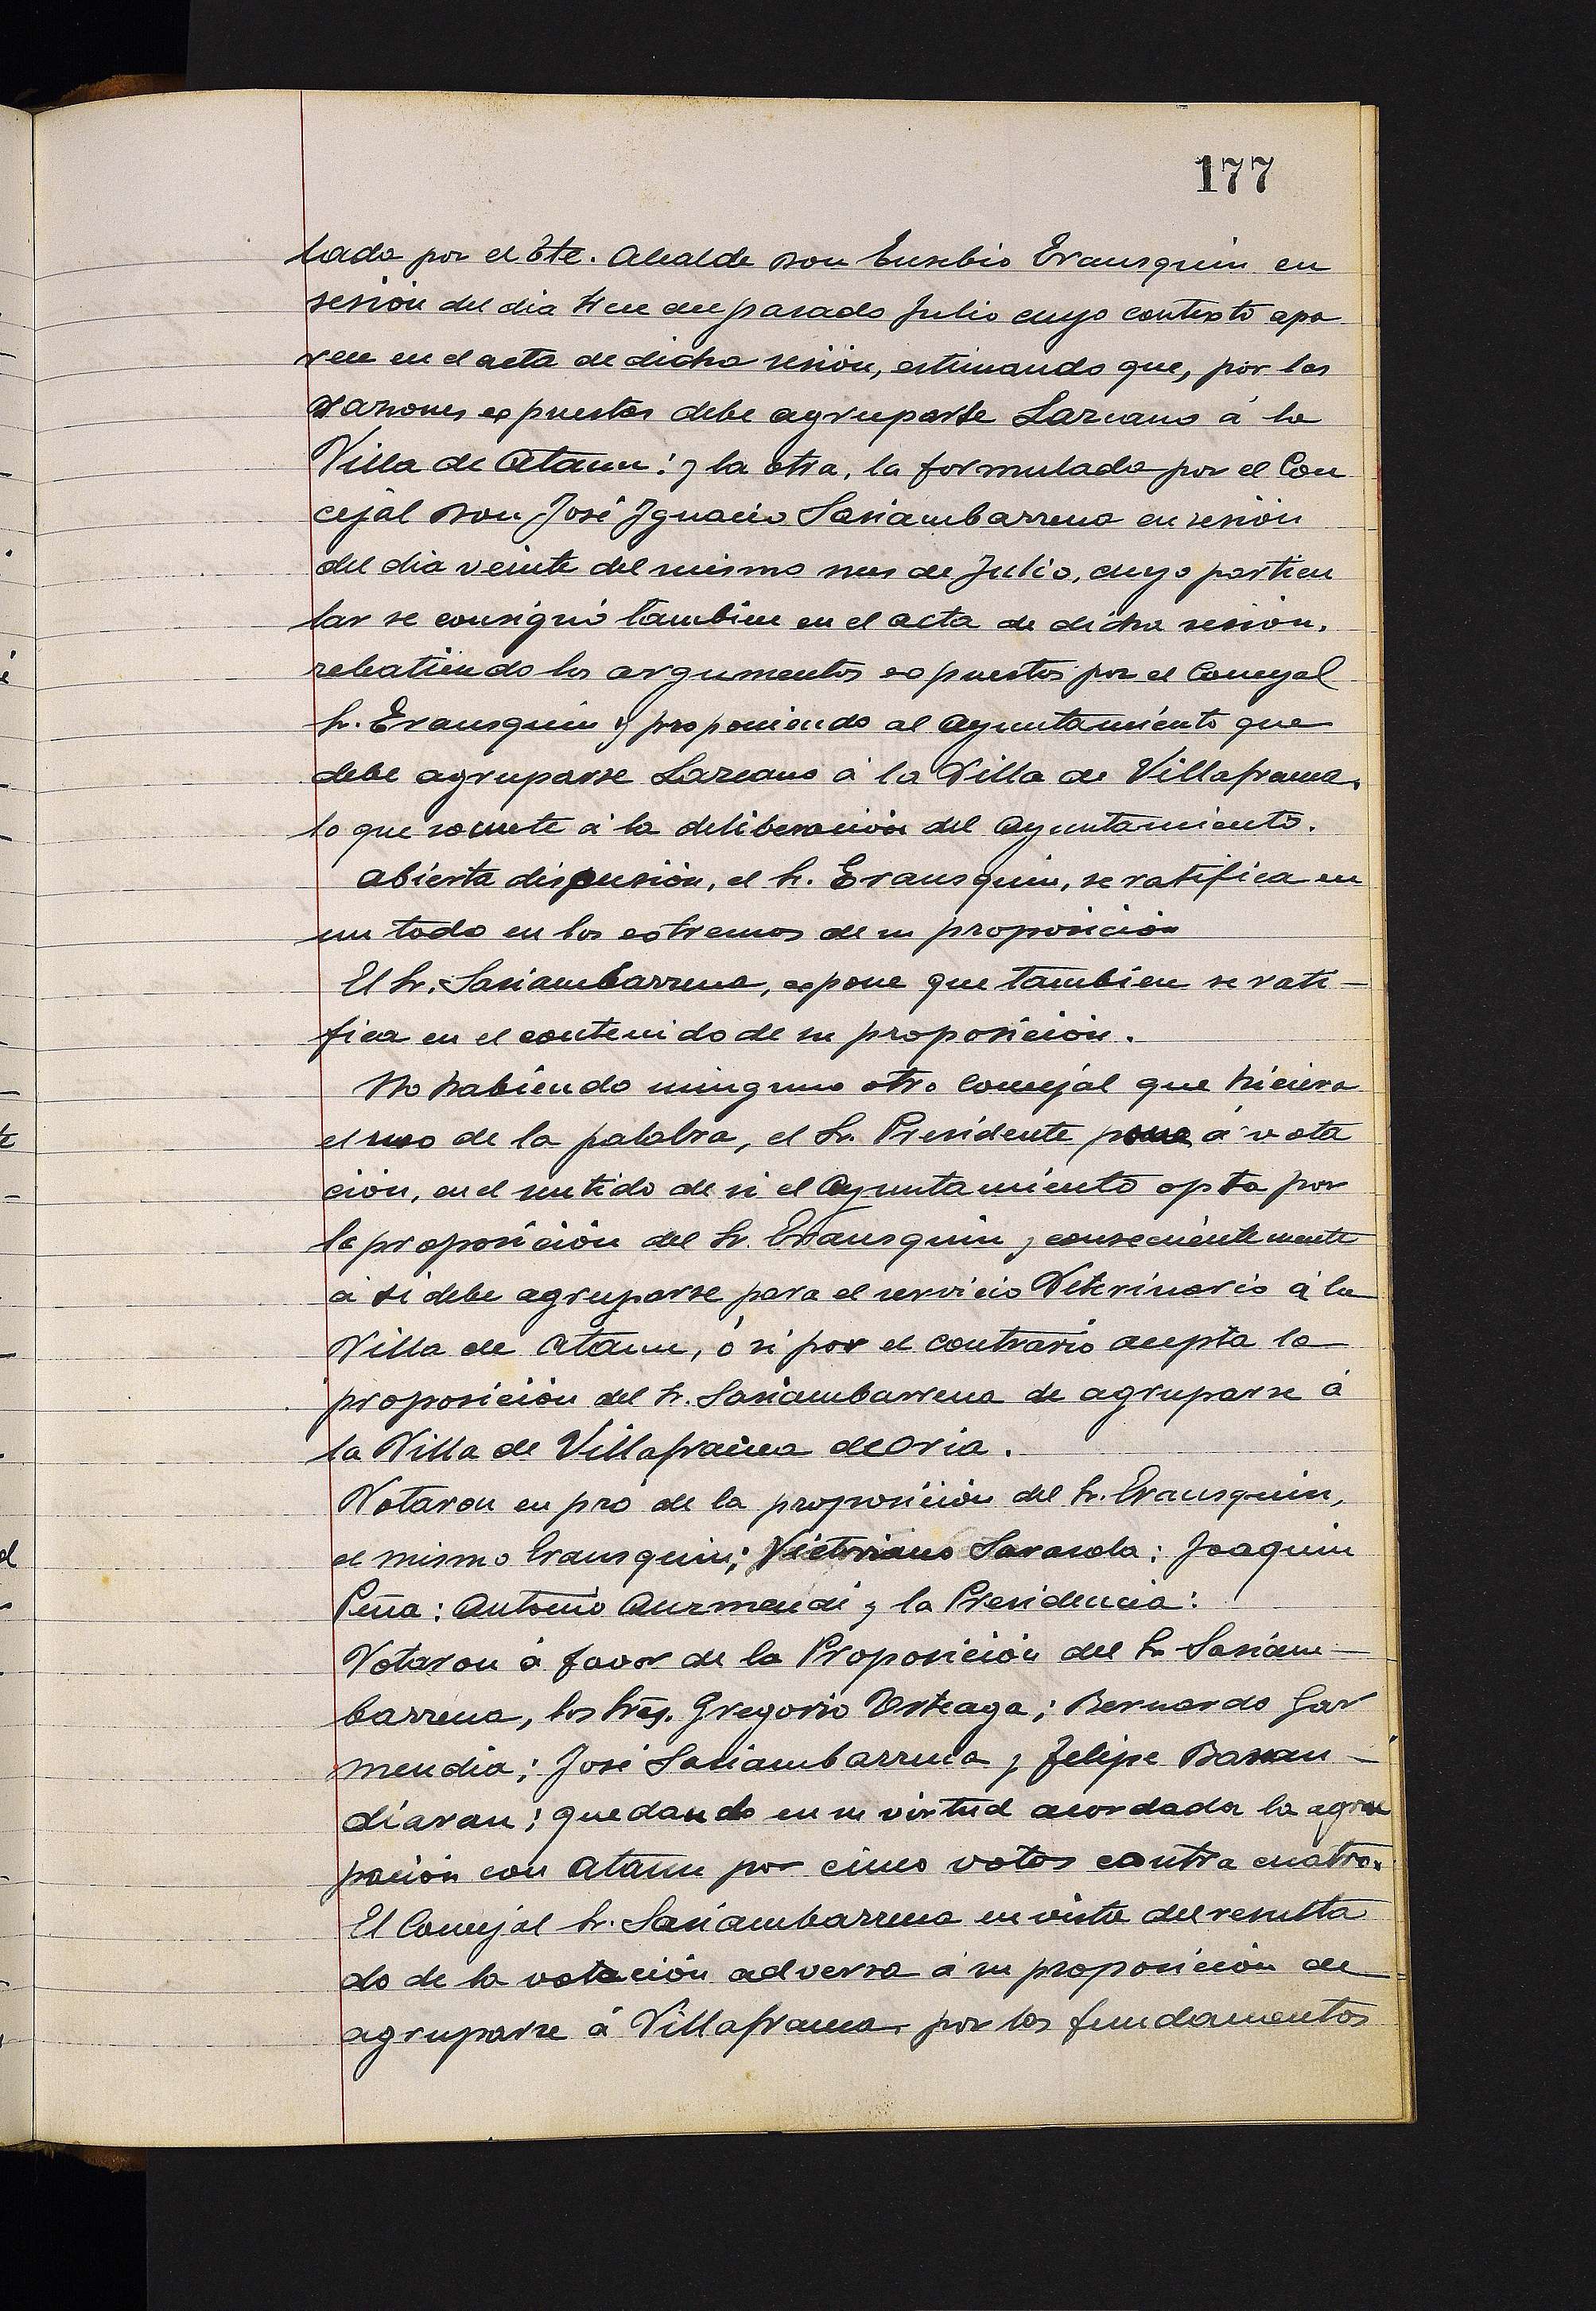 177
lada por el Ete. Alcalde Don Eusebio Erausquin en
sesión del dia trece del pasado Julio cuyo contexto apa
rece en el acta de dicha sesión, estimando que, por las
razones expuestas debe agruparse Lazcano á la
Villa de Ataun: y la otra, la formulada por el Con
cejal Don José Ignacio Sasiambarrena en sesión
del dia veinte del mismo mes de Julio, cuyo particu
lar se consignó tambien en el acta de dicha sesion,
rebatiendo los argumentos expuestos por el Concejal
Sr. Erausquin y proponiendo al Ayuntamiento que
debe agruparse Lazcano á la Villa de Villafranca,
lo que somete á la deliberación del Ayuntamiento.
Abierta discusión, el Sr. Erausquin, se ratifica en
un todo en los extremos de su proposición
El Sr. Sasiambarrena, expone que tambien se rati-
fica en el contenido de su proposición.
No habiendo ninguno otro Concejal que hiciera
el uso de la palabra, el Sr. Presidente pone á vota
ción, en el sentido de si el Ayuntamiento opta por
la proposición del Sr. Erausquin y consecuentemente
á si debe agruparse para el servicio Veterinario á la
Villa de Ataun, ó si por el contrario acepta la
proposición del Sr. Sasiambarrena de agruparse á
la Villa de Villafranca de Oria.
Votaron en pró de la proposición del Sr. Erausquin,
el mismo Erausquin; Victoriano Sarasola: Joaquin
Peña: Antonio Aurmendi y la Presidencia:
Votaron á favor de la Proposición del Sr Sasiam-
barrena, los Sres. Gregorio Urteaga; Bernardo Gar
mendia; José Sasiambarrena y Felipe Baran-
diaran; quedando en su virtud acordada la agru
pación con Ataun por cinco votos contra cuatro.
El Concejal Sr. Sasiambarrena en vista del resulta
do de la votación adversa á su proposición de
agruparse á Villafranca, por los fundamentos